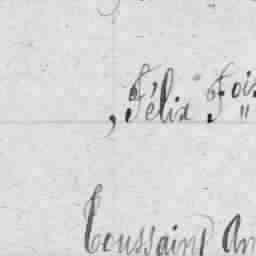 , Félix Fois
Toussaint An